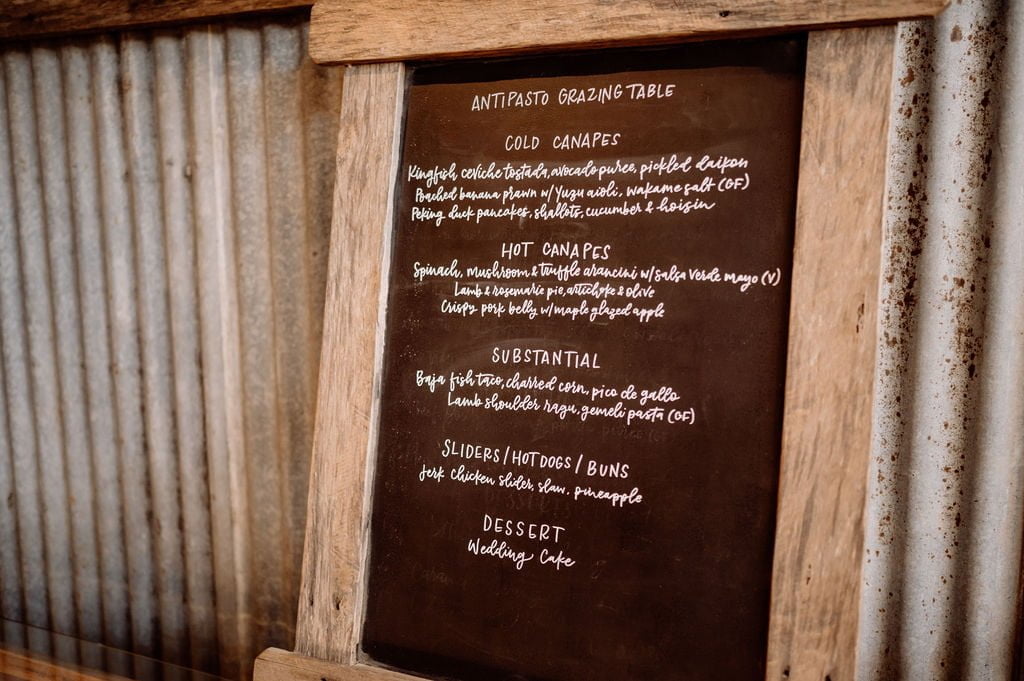 ANTIPASTO GRAZING TABLE
COLD CANAPES
Kingfish, ceviche tostada, avocado puree, pickled daikon
Poached banana prawn w/ Yuzu aioli, wakame salt (GF)
Peking duck pancakes, shallots, cucumber & hoisin
HOT CANAPES
Spinach, mushroom & truffle arancini w/ salsa verde mayo (V)
Lamb & rosemarie pie, artichoke & olive
Crispy pork belly w/ maple glazed apple
SUBSTANTIAL
Baja fish taco, charred corn, pico de gallo
Lamb shoulder ragu, gemeli pasta (GF)
SLIDERS/HOTDOGS/BUNS
Jerk chicken slider, slaw, pineapple
DESSERT
Wedding Cake